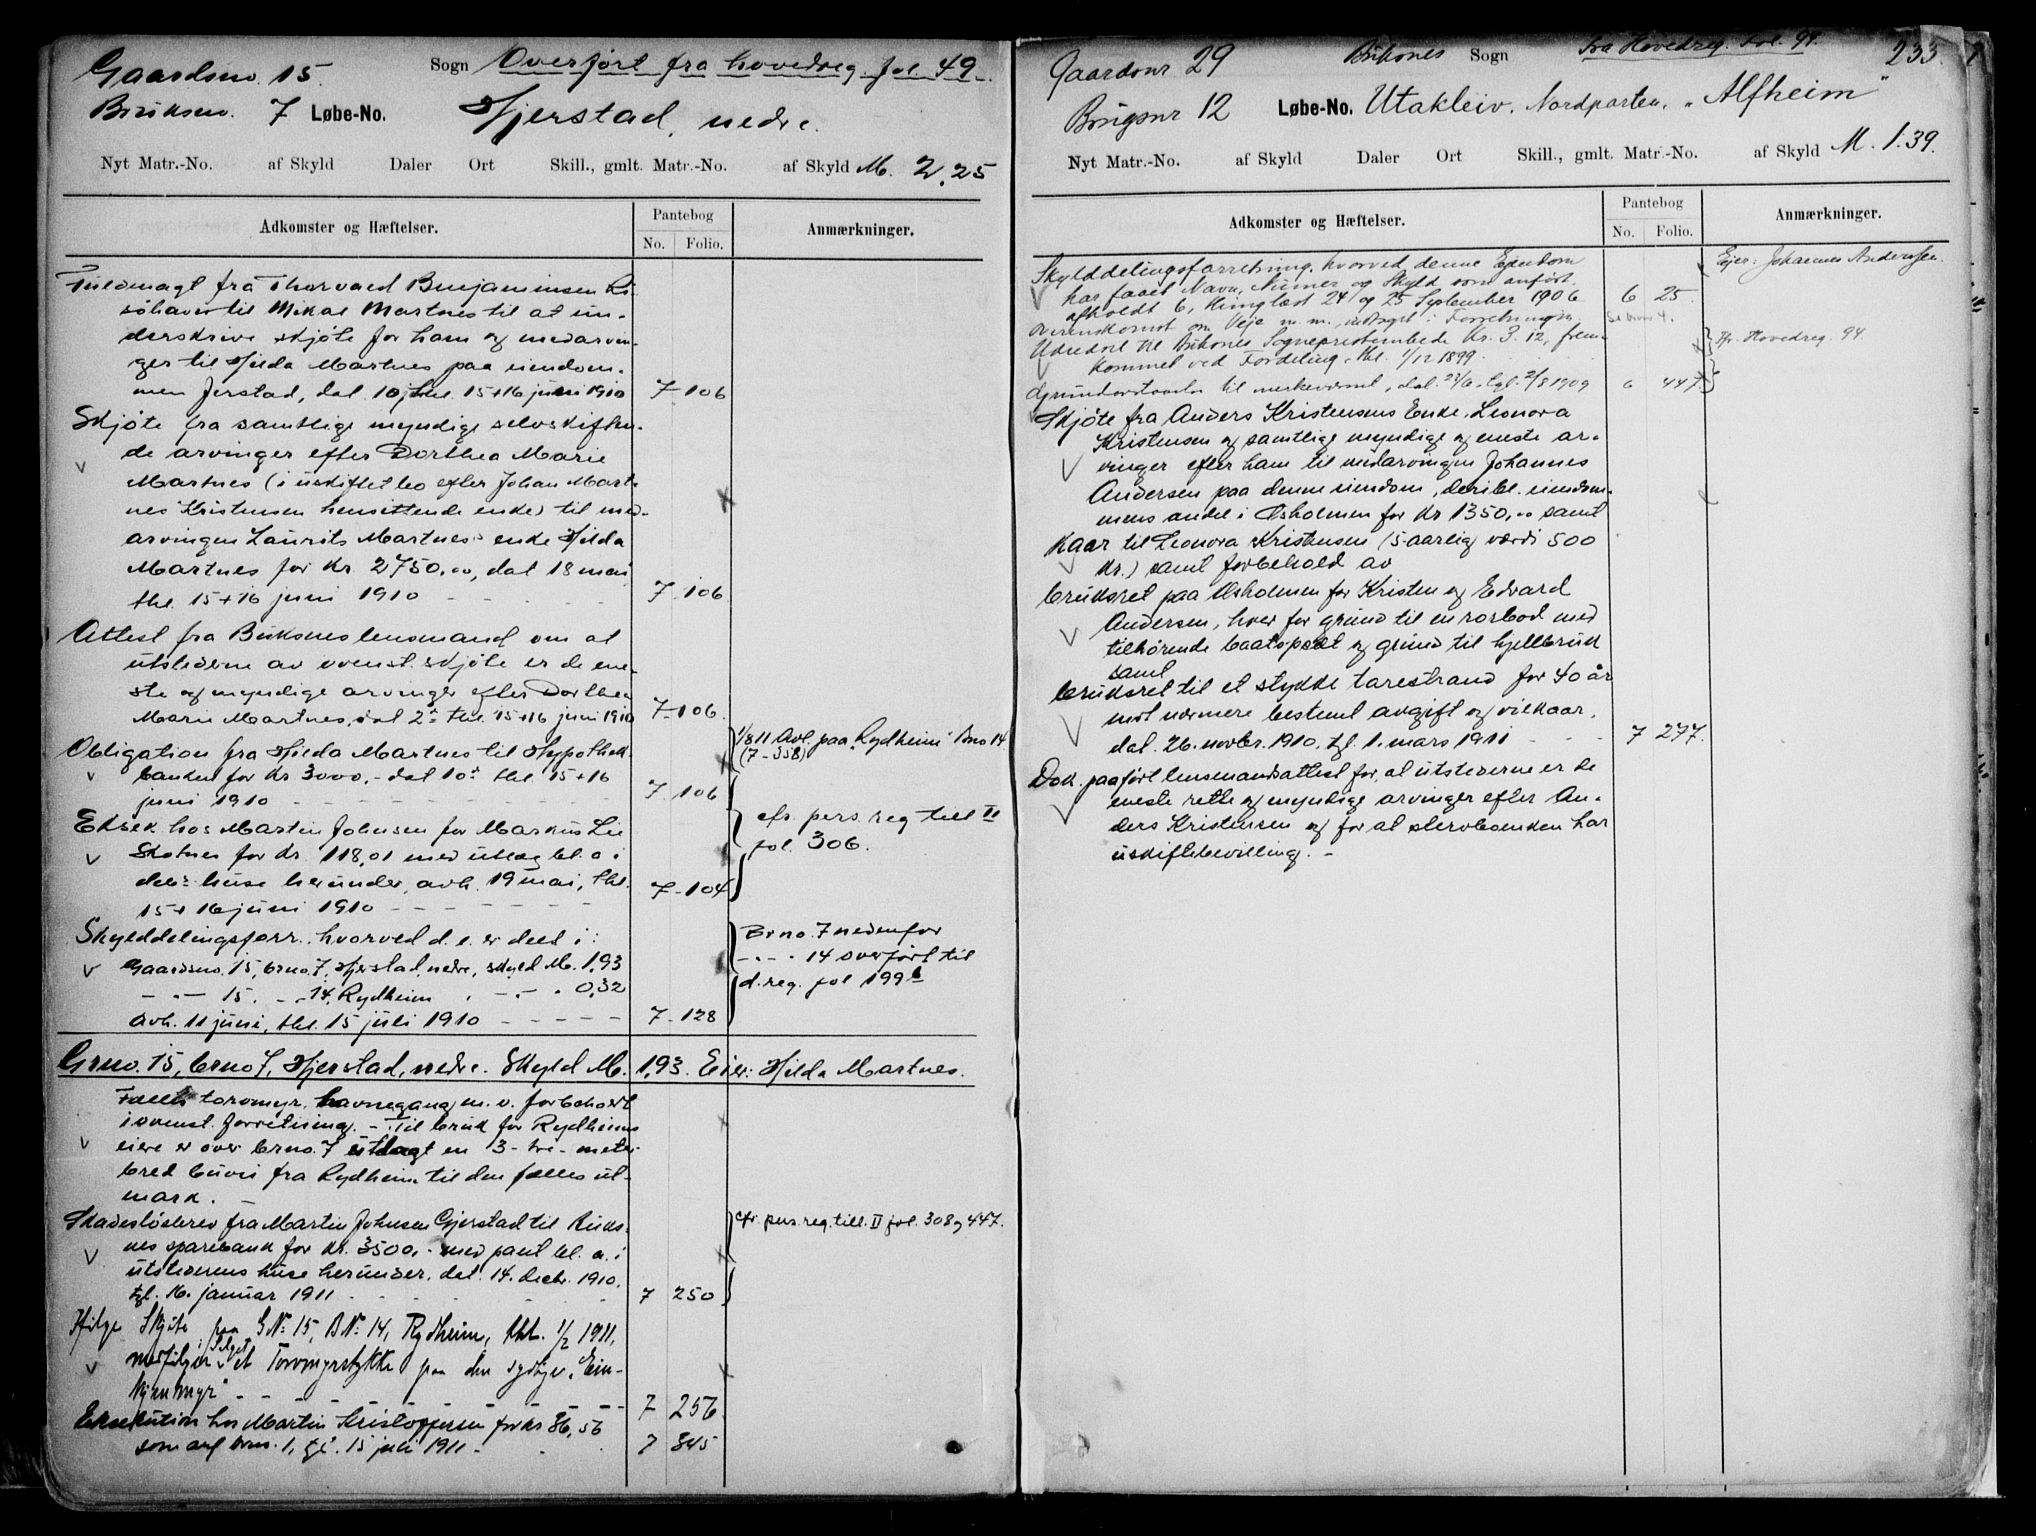 Gaardsno. 15. Sogn Overført fra hovedreg. fol. 49.
Bruksno. 7 Løbe-No. Hjerstad, nedre.
Nyt Matr.-No. af Skyld Daler Ort Skill., gmlt. Matr.-No. af Skyld M. 2,25
Adkomster og Hæftelser. Pantebog No. Folio. Anmærkninger.
Fuldmagt fra Thorvald Benjaminsen
til Mikal Martnes til at un-
derskrive skjøte for ham og medarvin-
ger til Hilda Martnes paa eiendom-
men Jerstad, dat. 10 , thl. 15+16 juni 1910 7-106
Skjøte fra samtlige myndige selvskiften-
de arvinger efter Dorthea Marie
Martnes (i uskiftet bo efter Johan Mart-
nes Kristensen hensittende enke) til med-
arvingen Laurits Martnes's enke Hilda
Martnes for kr. 2750.00, dat 18 mai
thl. 15+16 juni 1910 - - - 7-106
Attest fra Buksnes lensmand om at
utstederne av ovenst. skjøte er de ene-
ste og myndige arvinger efter Dorthea
Marie Martnes, dat 2. thl. 15+16 juni 1910 7-106
Obligation fra Hilda Martnes til Hypothek-
banken for kr 3000,- dat 10. thl. 15+16
juni 1910 - - - 7-106
1/8 11 Avl. paa "Rydheim" Brno 14
(7-358)
Eksek. hos Martin Johnsen for Markus Lie
Skotnes for kr. 118,01 med utlæg bl. a. i
dens huse herunder, avh. 19 mai, thl.
15+16 juni 1910 - - - 7-104
cfr. pers. reg till II
fol. 306.
Skylddelingsforr. hvorved d. e. er delt i:
Gaardsno. 15, brno. 7, Hjerstad, nedre, skyld M. 1,93
-"- 15. -"- 14, Rydheim " -"- " 0,32
avh. 11 juni, thl. 15 juli 1910 - - - 7-128
Brno. 7 nedenfor
-"-" 14 overført til
d. reg. fol 199b
Grno. 15, brno 7, Hjerstad, nedre. Skyld M. 1,93. Eier: Hilda Martnes.
Fælles torvmyr, havnegang m. v. forbeholdt
i ovenst. forretning. - Til bruk for Rydheims
eiere er over brno. 7 utlagt en 3- tre - meter
bred buvei fra Rydheim til den fælles ut-
mark.
Skadesløsbrev fra Martin Johnsen Gjerstad til Buks-
nes sparebank for kr. 3500,- med pant bl. a. i
utstederens huse herunder, dat. 14. decbr. 1910,
tgl. 16. januar 1911 - - - 7 250
cfr. pers. reg. till. II fol. 308 og 447.
Ifølge Skjøte paa GNr 15, BNr 14, Rydheim, thl. 1/2 1911,
medfølger i Salget et Torvmyrstykke paa den sydlige "Ein-
myr" - - - 7 256
Eksekution hos Martin Kristoffersen for kr 86,56
som anf. brno. 1, tgl. 15 juli 1911 - 7 345
Gaardsnr 29 Buksnes Sogn fra Hovedreg. fol. 94. 233
Brugsnr 12 Løbe-No. Utakleiv, Nordparten, "Alfheim"
Nyt Matr.-No. af Skyld Daler Ort Skill., gmlt. Matr.-No. af Skyld M. 1.39.
Adkomster og Hæftelser. Pantebog No. Folio. Anmærkninger.
Skylddelingsforretning, hvorved denne Eiendom
har faaet Navn, Numer og Skyld som anført.
afholdt 6, thinglæst 24 og 25 September 1906 6 25
Ejer: Johannes Andersen.
Overenskomst om Veje m. m., indtaget i Forretningen. Se brno 4.
Udredsel til Buksnes Sogneprestembede Kr. 3.12, frem-
kommet ved Fordeling, thl. 1/12 1899.
Fr. Hovedreg. 94
Grundavstaaelse til merkevæsenet, dat. 23/6, tgl. 2/8 1909 6 447
Skjøte fra Anders Kristensens Enke, Leonora
Kristensen og samtlige myndige og eneste ar-
vinger efter ham til medarvingen Johannes
Andersen paa denne eiendom, deribl. eiendom-
mens andel i Æsholmen for kr 1350,00 samt
Kaar til Leonora Kristensen (5-aarlig værdi 500
kr.) samt forbehold av
bruksret paa Æsholmen for Kristen og Edvard
Andersen, hver for grund til en rorbod med
tilhørende baatoplæt og grund til hjellbruk
samt
bruksret til et stykke tarestrand for 40 år
mot nærmere bestemt avgift og vilkaar.
dat. 26. novbr. 1910, tgl. 1. mars 1911 - - - 7 277.
Dok. paaført lensmandsattest for, at utstederne er de
eneste rette og myndige arvinger efter An-
ders Kristensen og for at stervboenken har
uskiftebevilling. -